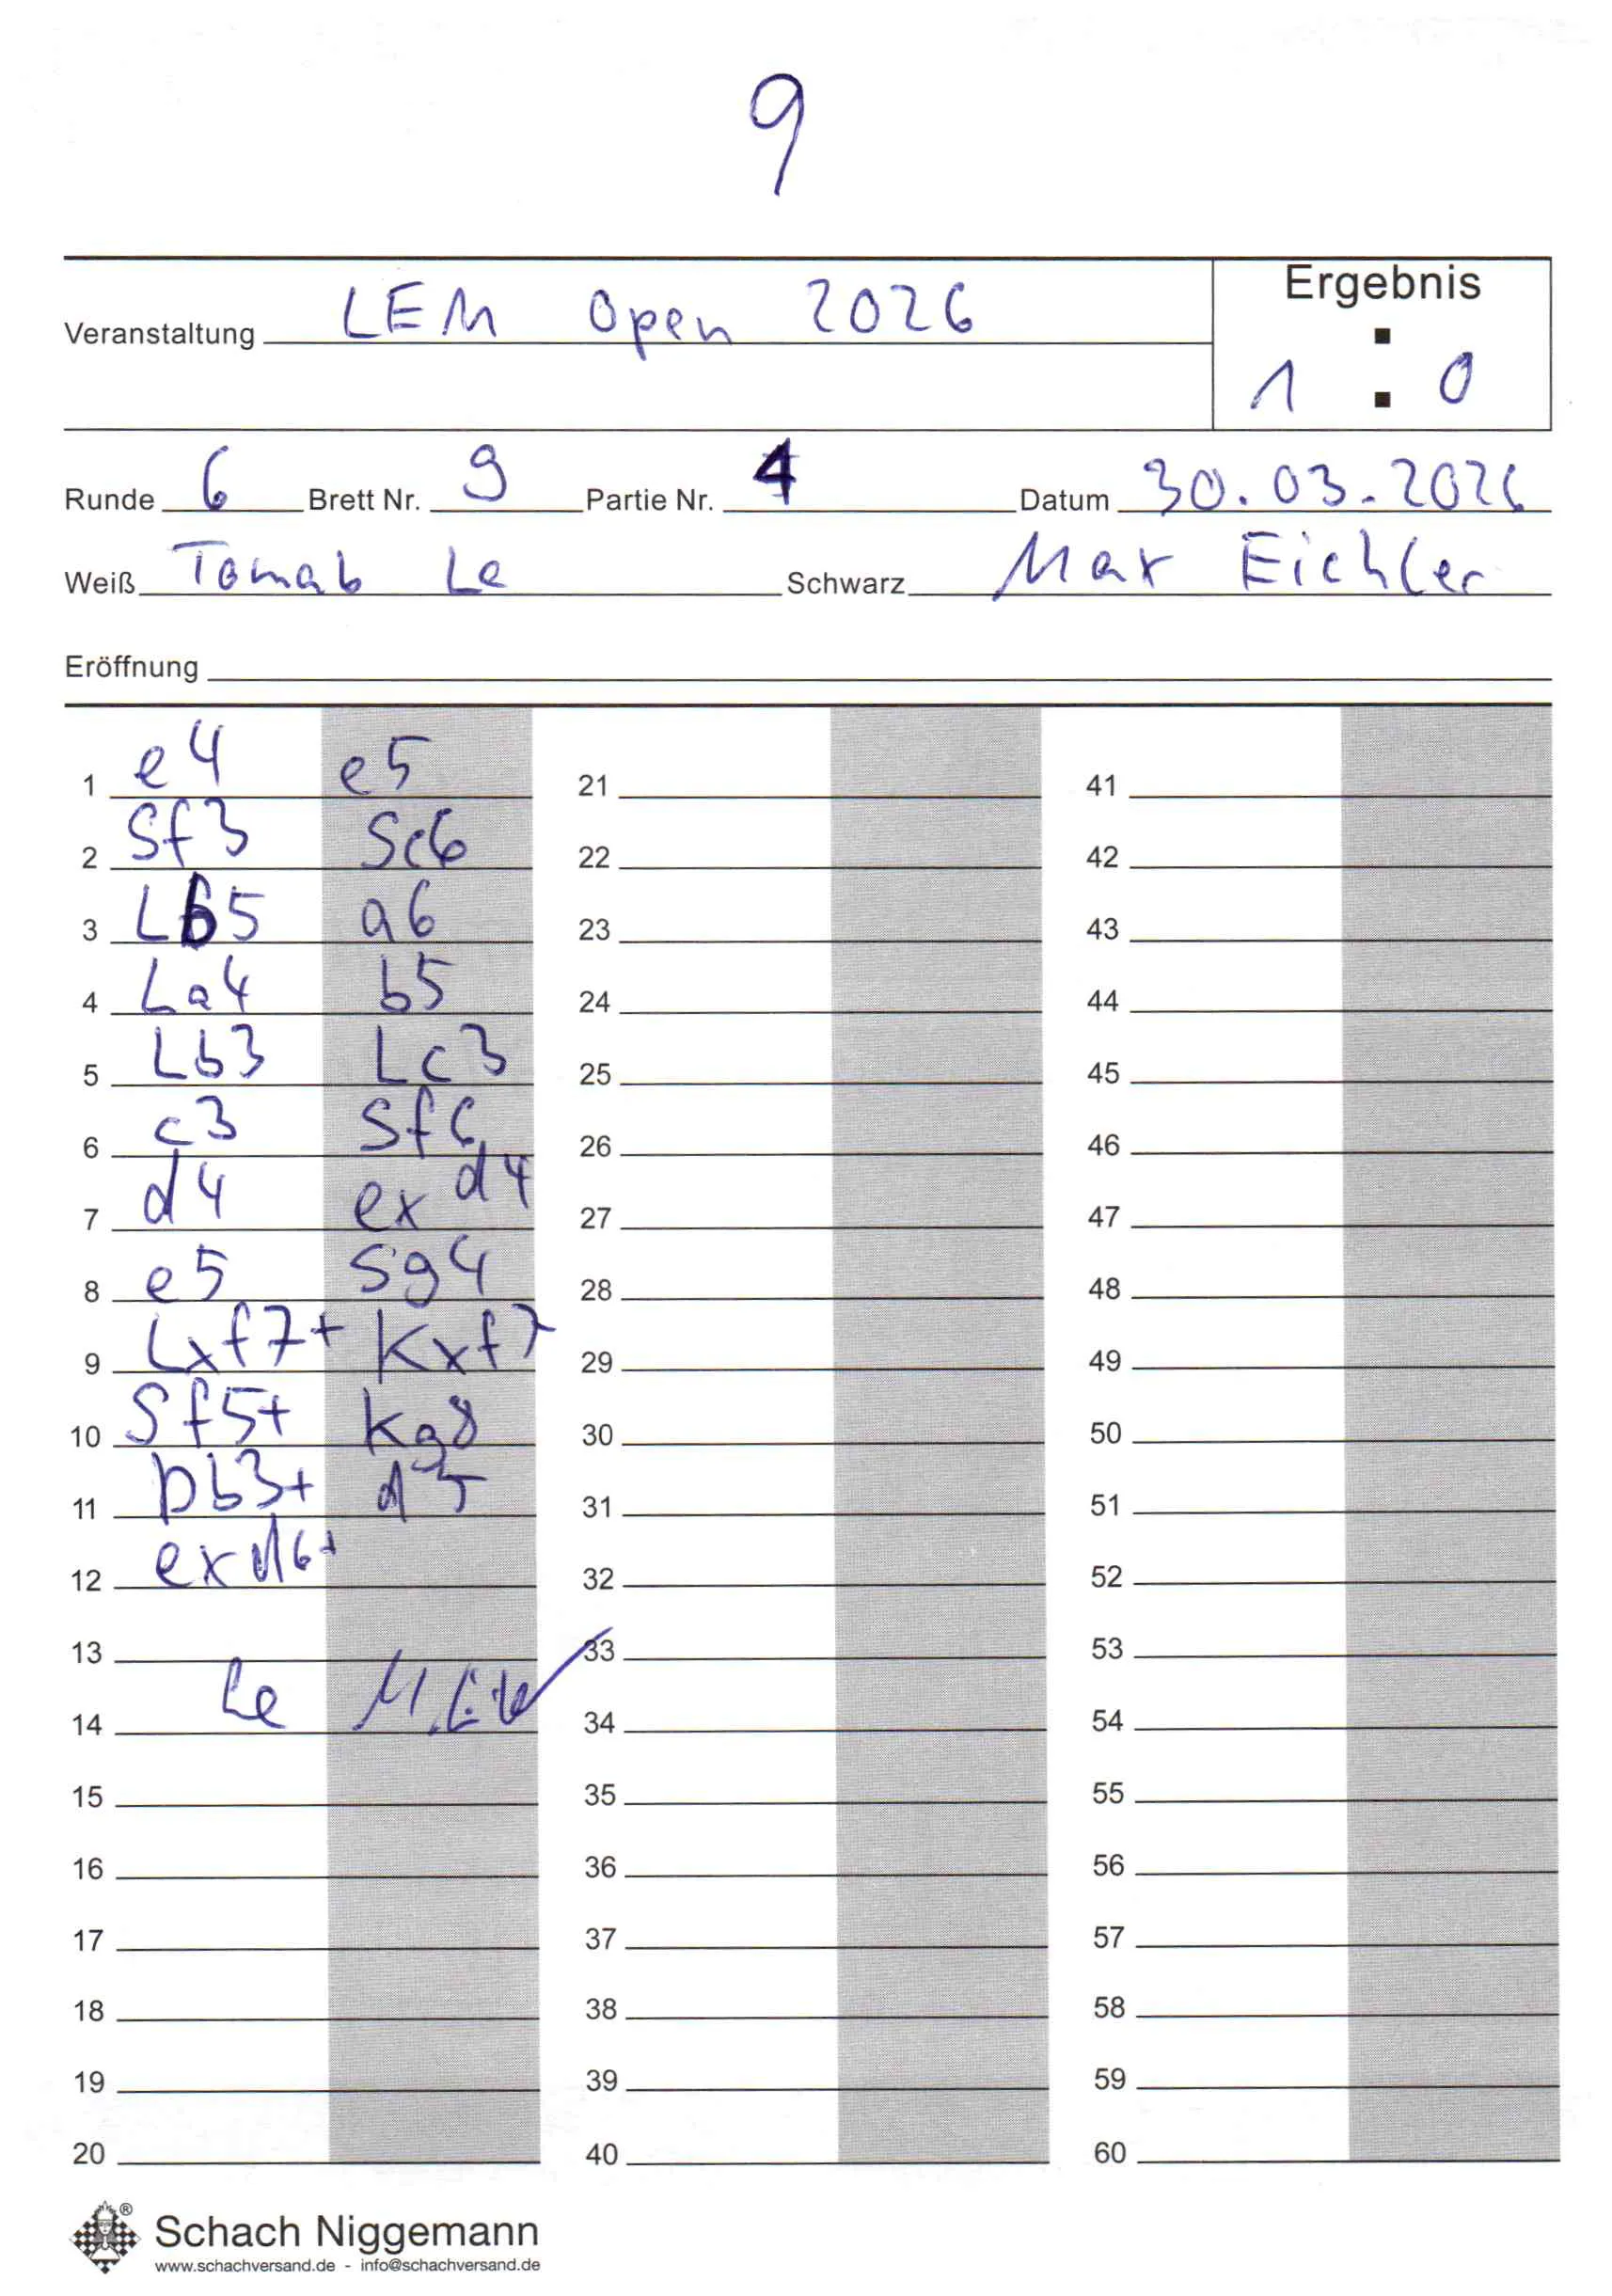 9
Veranstaltung LEM Open 2026
Ergebnis
1 : 0
Runde 6 Brett Nr. 9 Partie Nr. 4 Datum 30.03.2026
Weiß Tomab Le Schwarz Max Eichler
Eröffnung
1 e4 e5 21 41
2 Sf3 Sc6 22 42
3 Lb5 a6 23 43
4 La4 b5 24 44
5 Lb3 Lc3 25 45
6 c3 Sf6 26 46
7 d4 exd4 27 47
8 e5 Sg4 28 48
9 Lxf7+ Kxf7 29 49
10 Sf5+ Kg8 30 50
11 Db3+ d5 31 51
12 exd6+ 32 52
13 33 53
14 Le 34 54
15 35 55
16 36 56
17 37 57
18 38 58
19 39 59
20 40 60
® Schach Niggemann
www.schachversand.de - info@schachversand.de